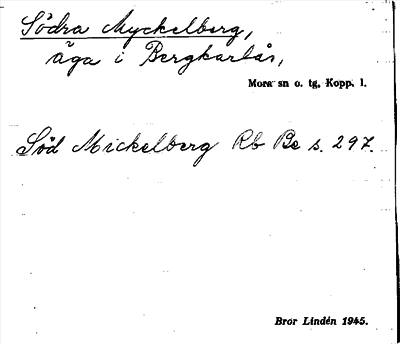 Södra Myckelberg,
äga i Bergkarlås,
Mora sn o. tg. Kopp. l.
Söd Mickelberg Rb Be s. 297.
Bror Lindén 1945.